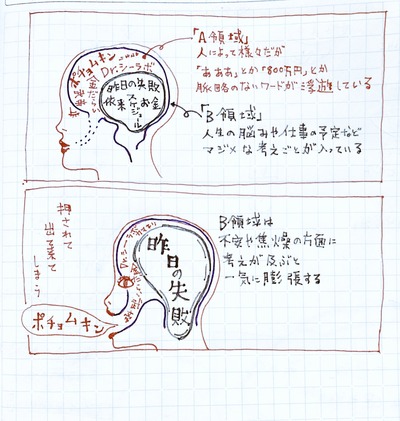 「A領域」
人によって様々だが
「あああ」とか「800万円」とか
脈略のないワードが浮遊している
ポチョムキン
Dr.シーラボ
昨日の失敗
スケジュール
将来
お金
「B領域」
人生の悩みや仕事の予定など
マジメな考えごとが入っている
押されて
出て来て
しまう
Dr.シーラボ
昨日の失敗
ポチョムキン
B領域は
不安や焦燥の方面に
考えが及ぶと
一気に膨張する